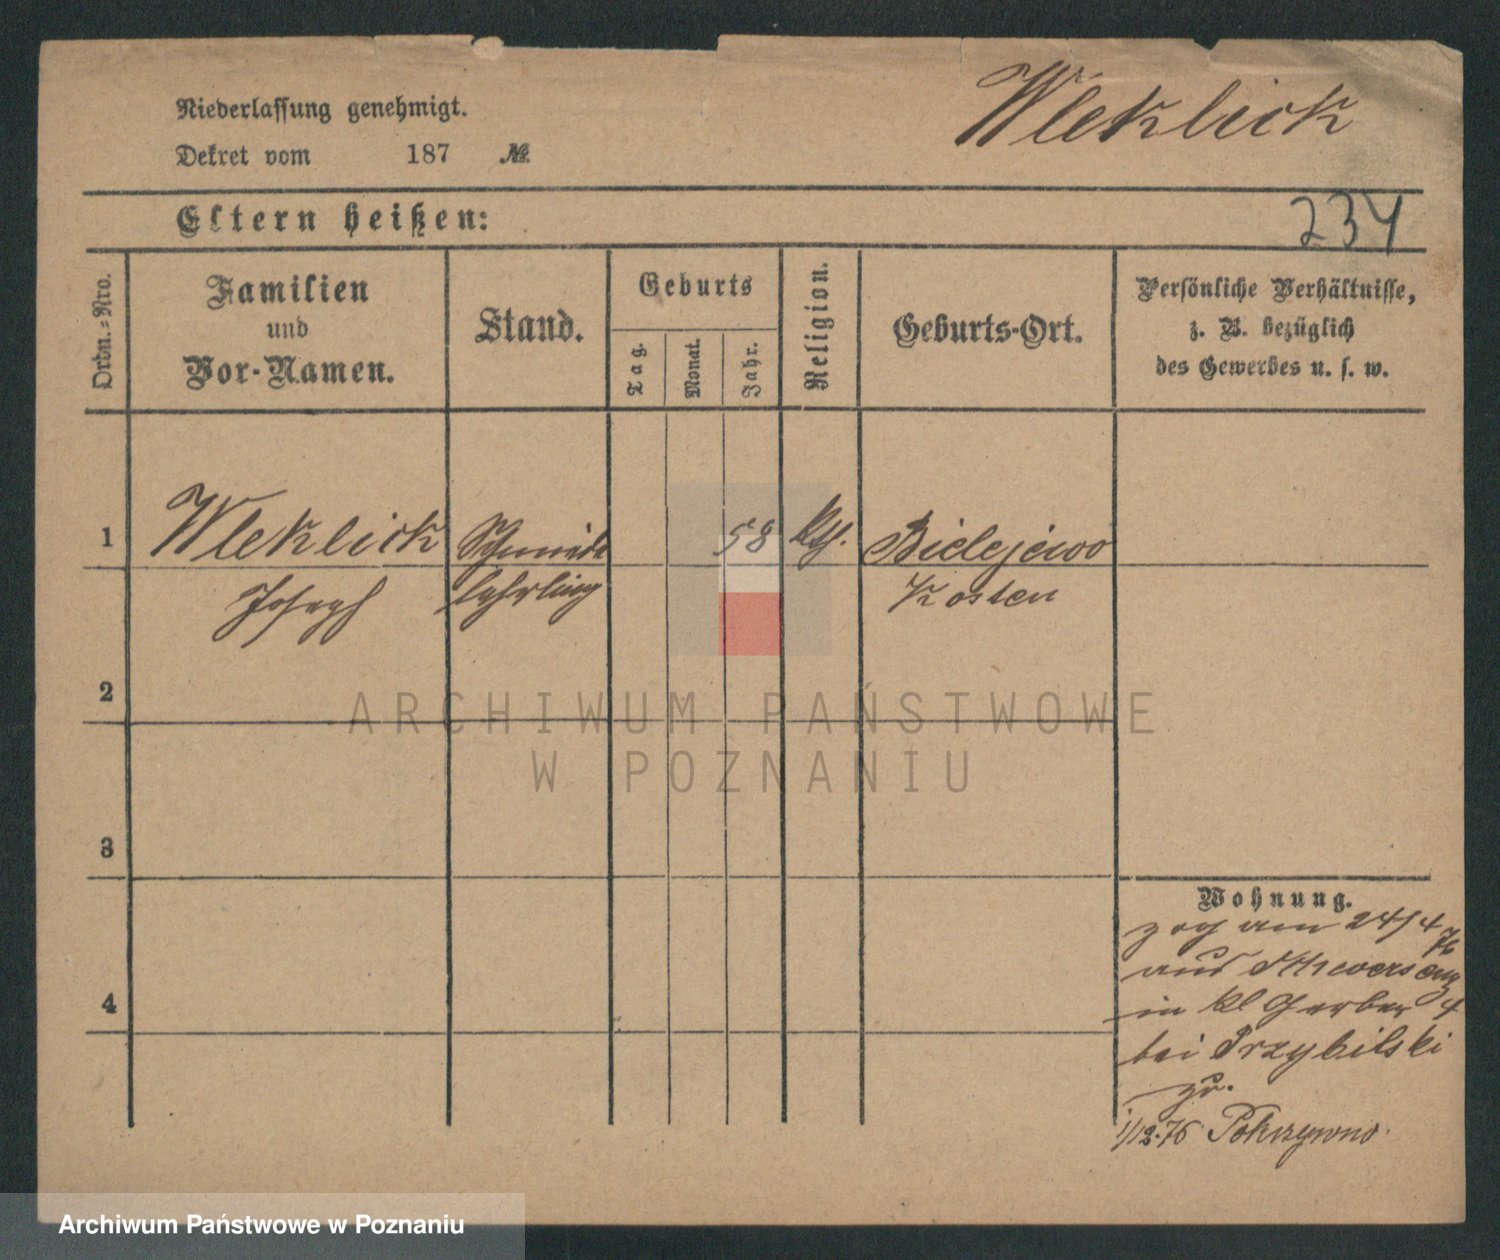 Niederlassung genehmigt.
Wleklick
Dekret vom 187 №
Eltern heißen:
234
Ordn.-Nro.
Familien
und
Vor-Namen.
Stand.
Geburts
Tag.
Monat.
Jahr.
Religion.
Geburts-Ort.
Persönliche Verhältnisse,
z. B. bezüglich
des Gewerbes u. s. w.
1 Wleklick Schmide 58 kth. Bielejewo
Joseph lehrling Kosten
2
3
4
Wohnung.
zog am 24/4 76
aus
in kl Gerber 4
bei Przybilski
zu.
1/12.76 Pokrzywno
ARCHIWUM PAŃSTWOWE
W POZNANIU
Archiwum Państwowe w Poznaniu